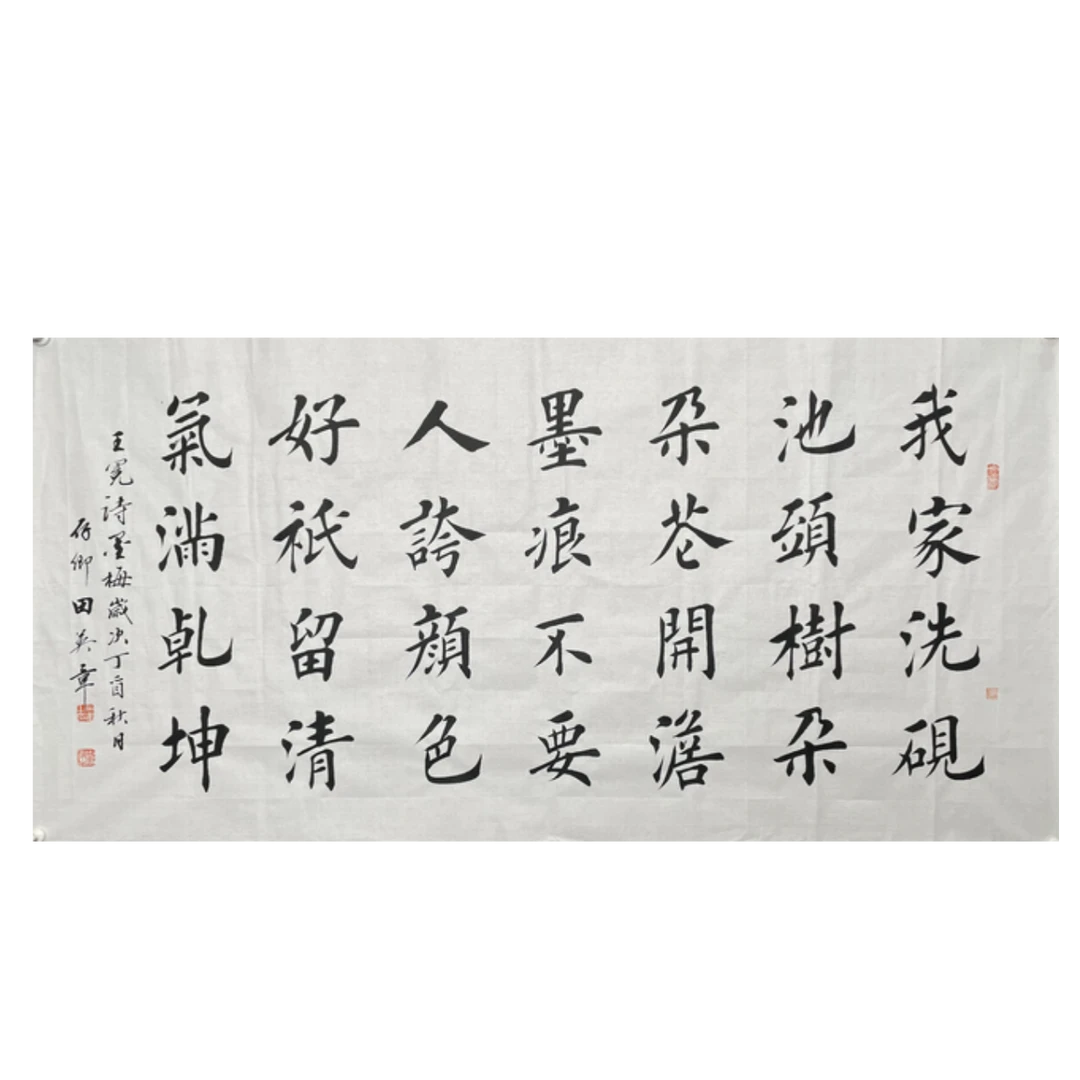 我家洗硯
池頭樹朵
朵花開澹
墨痕不要
人誇顏色
好祇留清
氣滿乾坤
王冕詩墨梅歲次丁酉秋日
存卿田英章